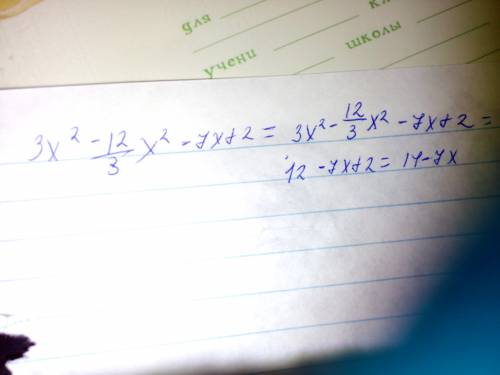 для
учени
школы
3x² - 12/3 x² - 7x+2 = 3x² - 12/3 x² - 7x+2 =
12 - 7x+2 = 14-7x